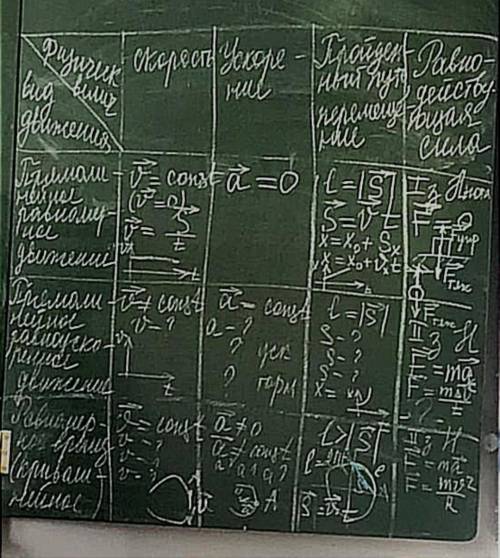 Физичес
велич
вид
движения
Скорость
Ускоре-
ние
Пройден-
ный путь
перемеще
ние
Равно-
действу
ющая
сила
Прямоли
нейное
равномер-
ное
движение
v⃗ = const
v⃗ = S⃗/t
a⃗ = 0
l = |S⃗|
S⃗ = v⃗ t
x = x₀ + Sₓ
x = x₀ + vₓt
I з Ньют
F = 0
Fупр
Fтяж
Прямоли
нейное
равноуско-
ренное
движение
v⃗ ≠ const
v = ?
v
t
a⃗ = const
a = ?
? уск
? торм
l = |S⃗|
S = ?
S = ?
S = ?
x = x(t)
Fтяж
II з Н
F⃗ = ma⃗
Равномер-
ное вращ
(криволи
нейное)
v⃗ ≠ const
v = ?
v = ?
v = ?
a⃗ ≠ 0
a⃗ ≠ const
l > |S⃗|
II з Н
F⃗ = ma⃗
F = mv²/R